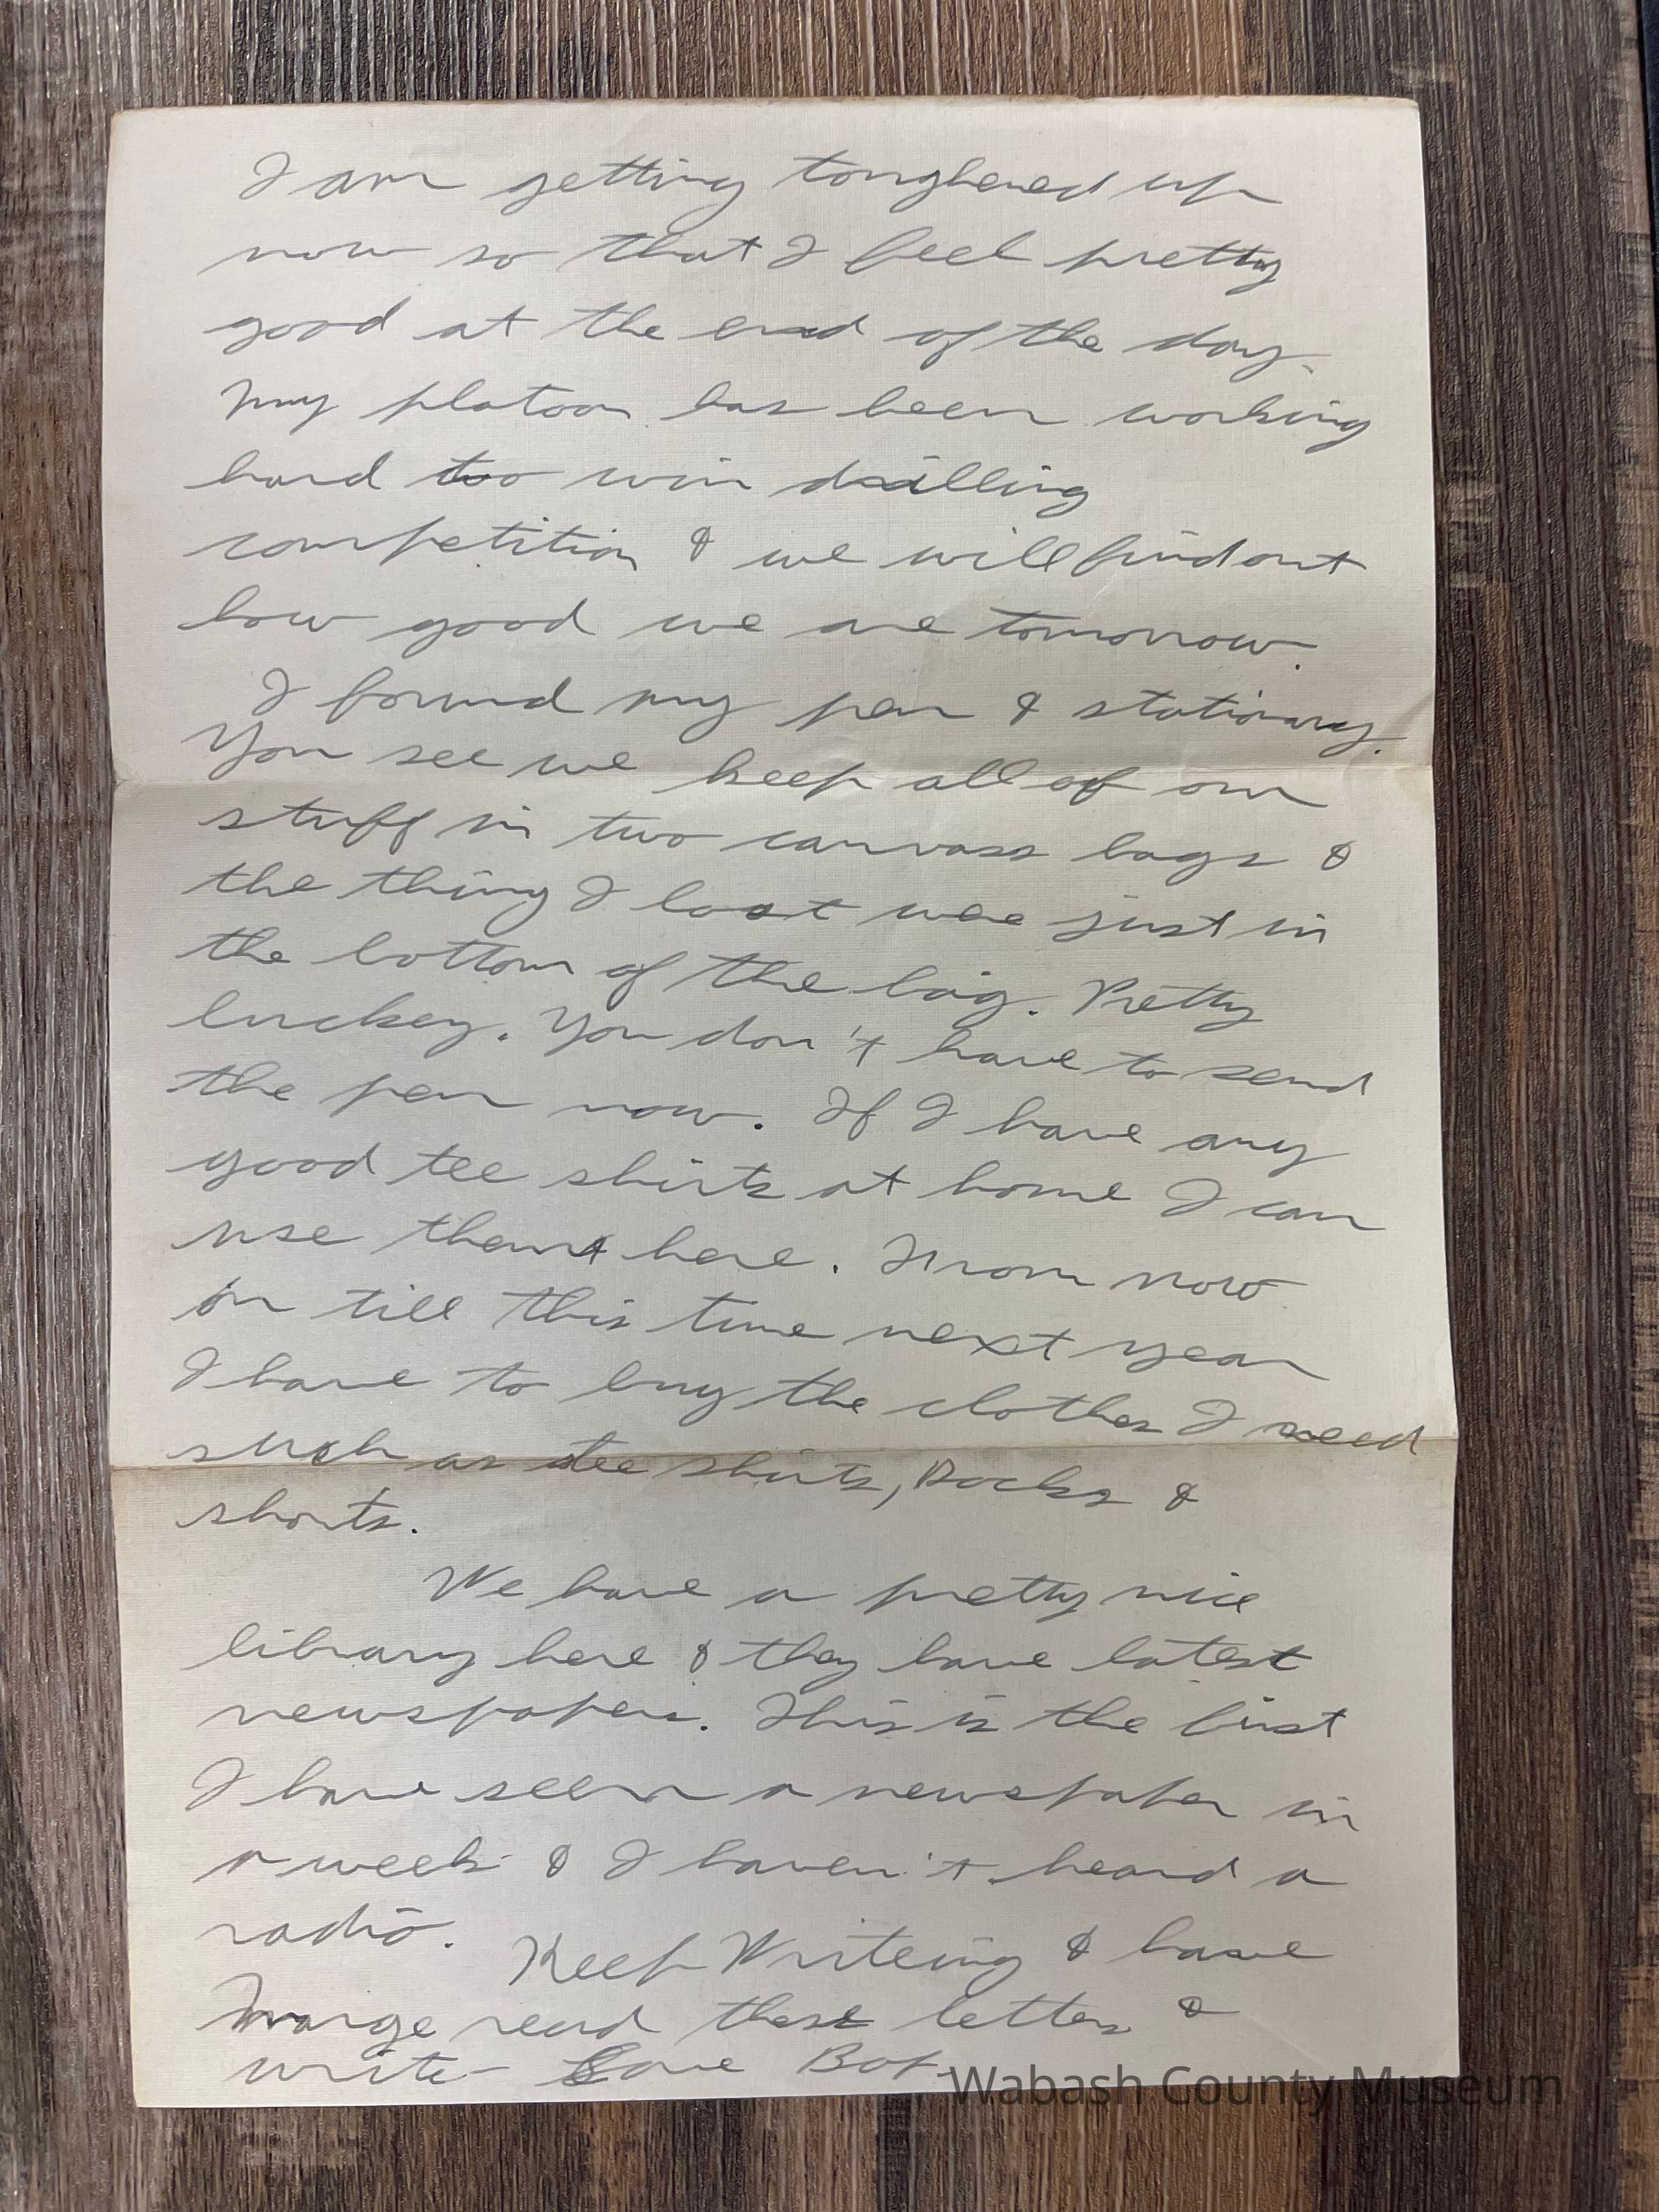 I am getting toughened up
now so that I feel pretty
good at the end of the day.
My platoon has been working
hard too win drilling
competition & we will find out
how good we are tomorrow.
I found my pen & stationary.
You see we keep all of our
stuff in two canvass bags &
the thing I lost was just in
the bottom of the bag. Pretty
luckey. You don't have to send
the pen now. If I have any
good tee shirts at home I can
use them here. From now
on till this time next year
I have to buy the clothes I need
such as tee shirts, Socks &
shorts.
We have a pretty nice
library here & they have latest
newspapers. This is the first
I have seen a newspaper in
a week & I haven't heard a
radio.
Keep Writeing & have
Marge read these letters &
write - Love Bob
Wabash County Museum